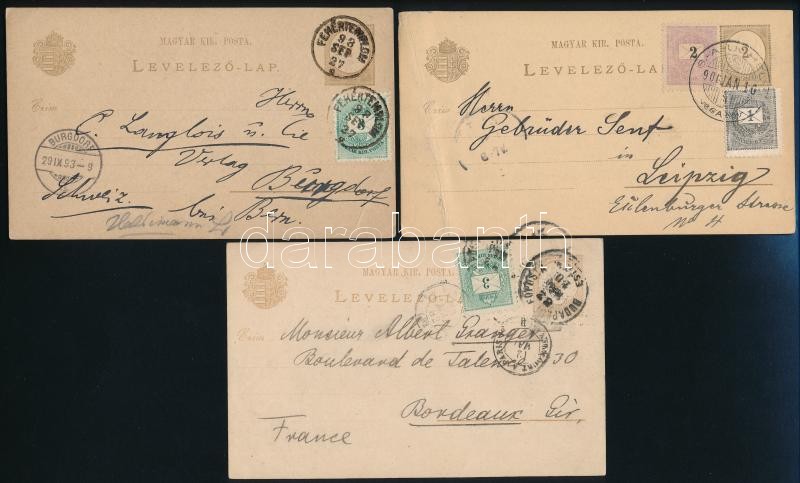 MAGYAR KIR. POSTA.
LEVELEZŐ-LAP.
FEHÉRTEMPLOM
93
SEP
27
FEHÉRTEMPLOM
Czím
Herrn
C. Langlois u. Cie
Verlag
Burgdorf
bei Bern.
Schweiz
BURGDORF
29 IX 93-9
MAGYAR KIR. POSTA.
LEVELEZŐ-LAP.
2
2
1
900 JAN 10
Czím
Herrn
Gebrüder Senf
in
Leipzig
Eulenburger Strasse
No 4
MAGYAR KIR. POSTA.
LEVELEZŐ-LAP
3
BUDAPEST
Czím
Monsieur Albert Granger
Boulevard de Talence 30
Bordeaux Gir.
France
darabanth